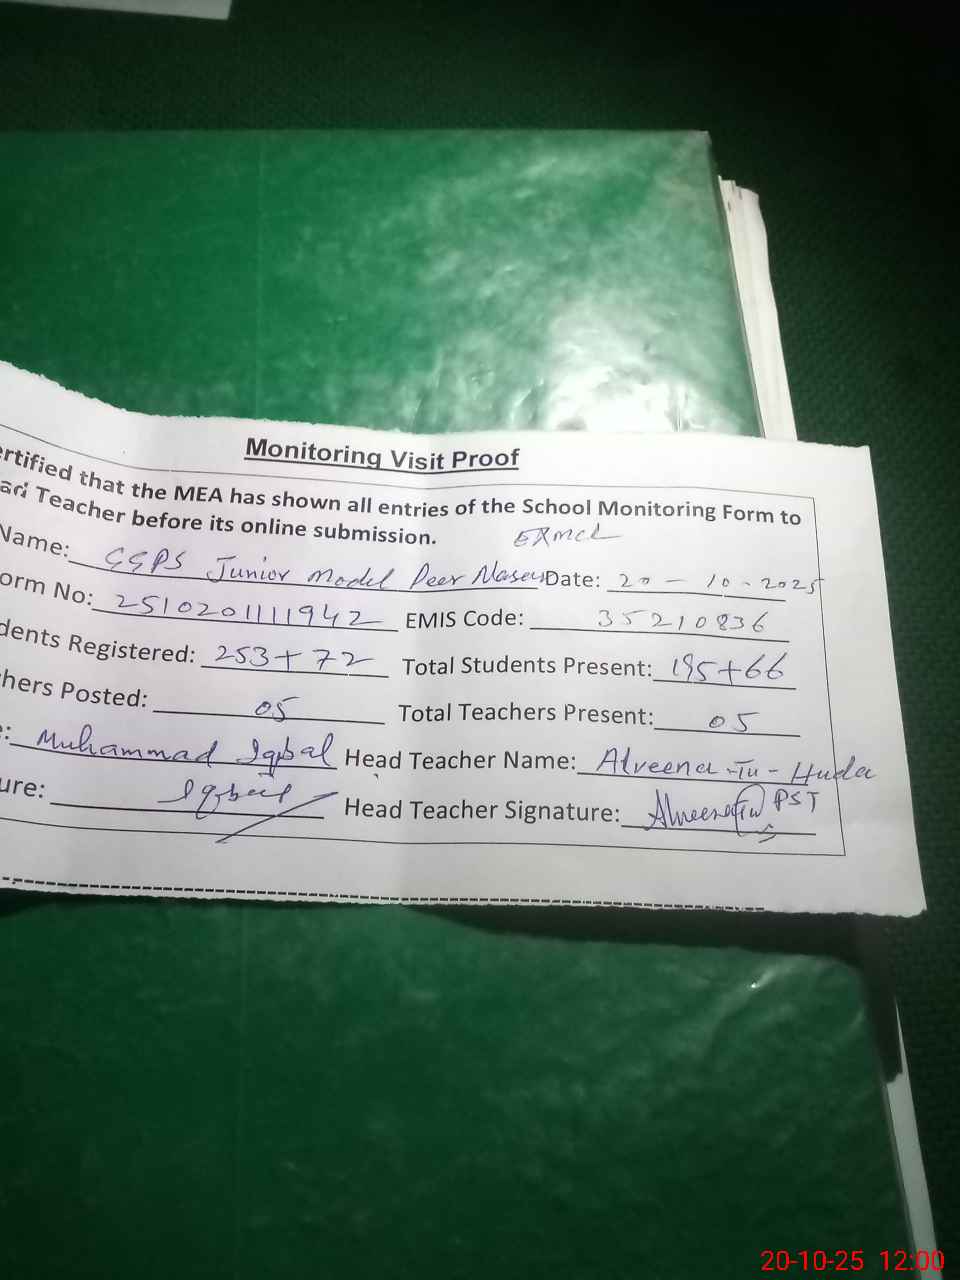 Monitoring Visit Proof
ertified that the MEA has shown all entries of the School Monitoring Form to
ad Teacher before its online submission. EXMCL
Name: GGPS Junior Model Peer Naseer Date: 20-10-2025
orm No: 2510201111942 EMIS Code: 35210836
dents Registered: 253+72 Total Students Present: 195+66
hers Posted: 05 Total Teachers Present: 05
e: Muhammad Iqbal Head Teacher Name: Alveena-Tu-Huda
ure: Iqbal Head Teacher Signature: PST
20-10-25 12:00